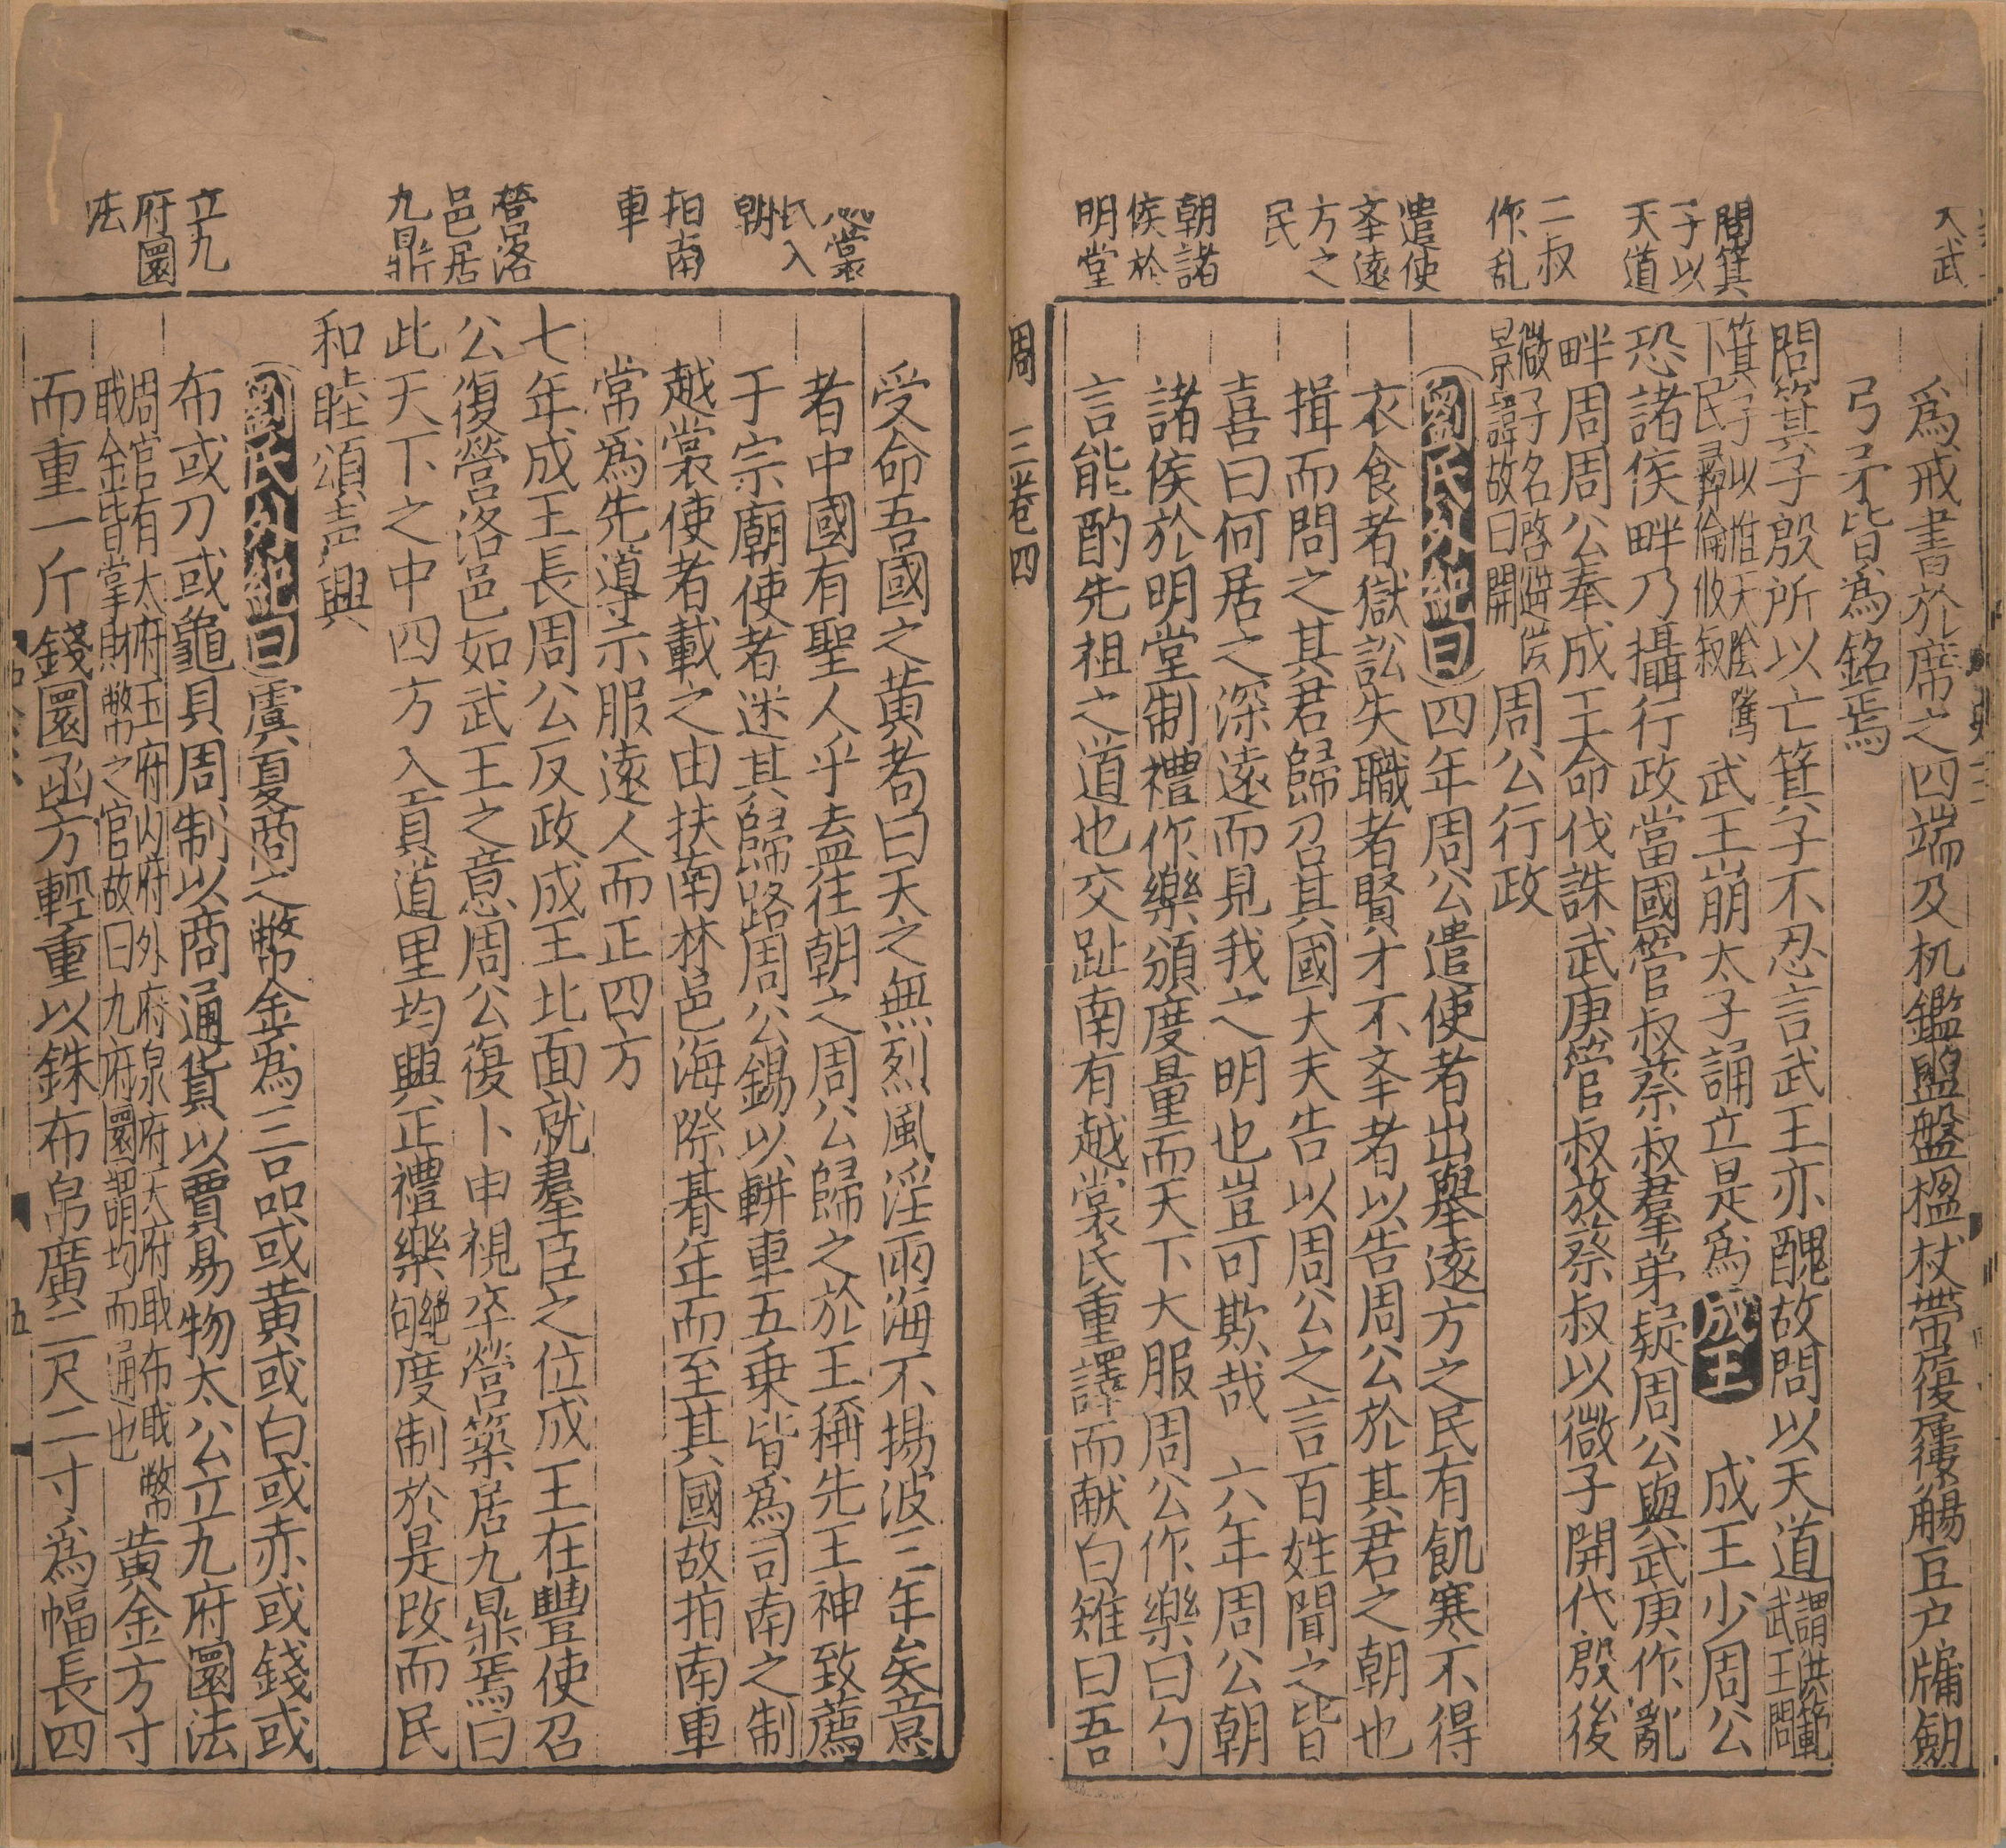 入武
問箕
子以
天道
二叔
作乱
遣使
奉遠
方之
民
朝諸
侯於
明堂
爲戒書於席之四端及机鑑盥盤楹杖帶履屨觴豆户牖劒
弓矛皆爲銘焉
問箕子殷所以亡箕子不忍言武王亦醜故問以天道謂洪範
武王問
箕子以惟天陰騭
下民彛倫攸叙武王崩太子誦立是爲成王 成王少周公
恐諸侯畔乃攝行政當國管叔蔡叔羣弟疑周公與武庚作亂
畔周周公奉成王命伐誅武庚管叔放蔡叔以微子開代殷後
微子名啓避漢
景諱故曰開周公行政
劉氏外紀曰四年周公遣使者出舉遠方之民有飢寒不得
衣食者獄訟失職者賢才不奉者以告周公於其君之朝也
揖而問之其君歸召其國大夫告以周公之言百姓聞之皆
喜曰何居之深遠而見我之明也豈可欺哉 六年周公朝
諸侯於明堂制禮作樂頒度量而天下大服周公作樂曰勺
言能酌先祖之道也交趾南有越裳氏重譯而献白雉曰吾
周 三卷四
越裳
氏入
朝
指南
車
營洛
邑居
九鼎
立九
府圜
法
受命吾國之黃耇曰天之無烈風淫雨海不揚波三年矣意
者中國有聖人乎盍往朝之周公歸之於王稱先王神致薦
于宗廟使者迷其歸路周公錫以輧車五乗皆爲司南之制
越裳使者載之由扶南林邑海際朞年而至其國故指南車
常爲先導示服遠人而正四方
七年成王長周公反政成王北面就羣臣之位成王在豐使召
公復營洛邑如武王之意周公復卜申視卒營築居九鼎焉曰
此天下之中四方入貢道里均興正禮樂度制於是改而民
和睦頌声興
劉氏外紀曰虞夏商之幣金爲三品或黃或白或赤或錢或
布或刀或龜貝周制以商通貨以賈易物太公立九府圜法
周官有太府玉府内府外府泉府天府職布職幣
職金皆掌財幣之官故曰九府圜謂均而通也黃金方寸
而重一斤錢圜函方輕重以銖布帛廣二尺二寸爲幅長四
五